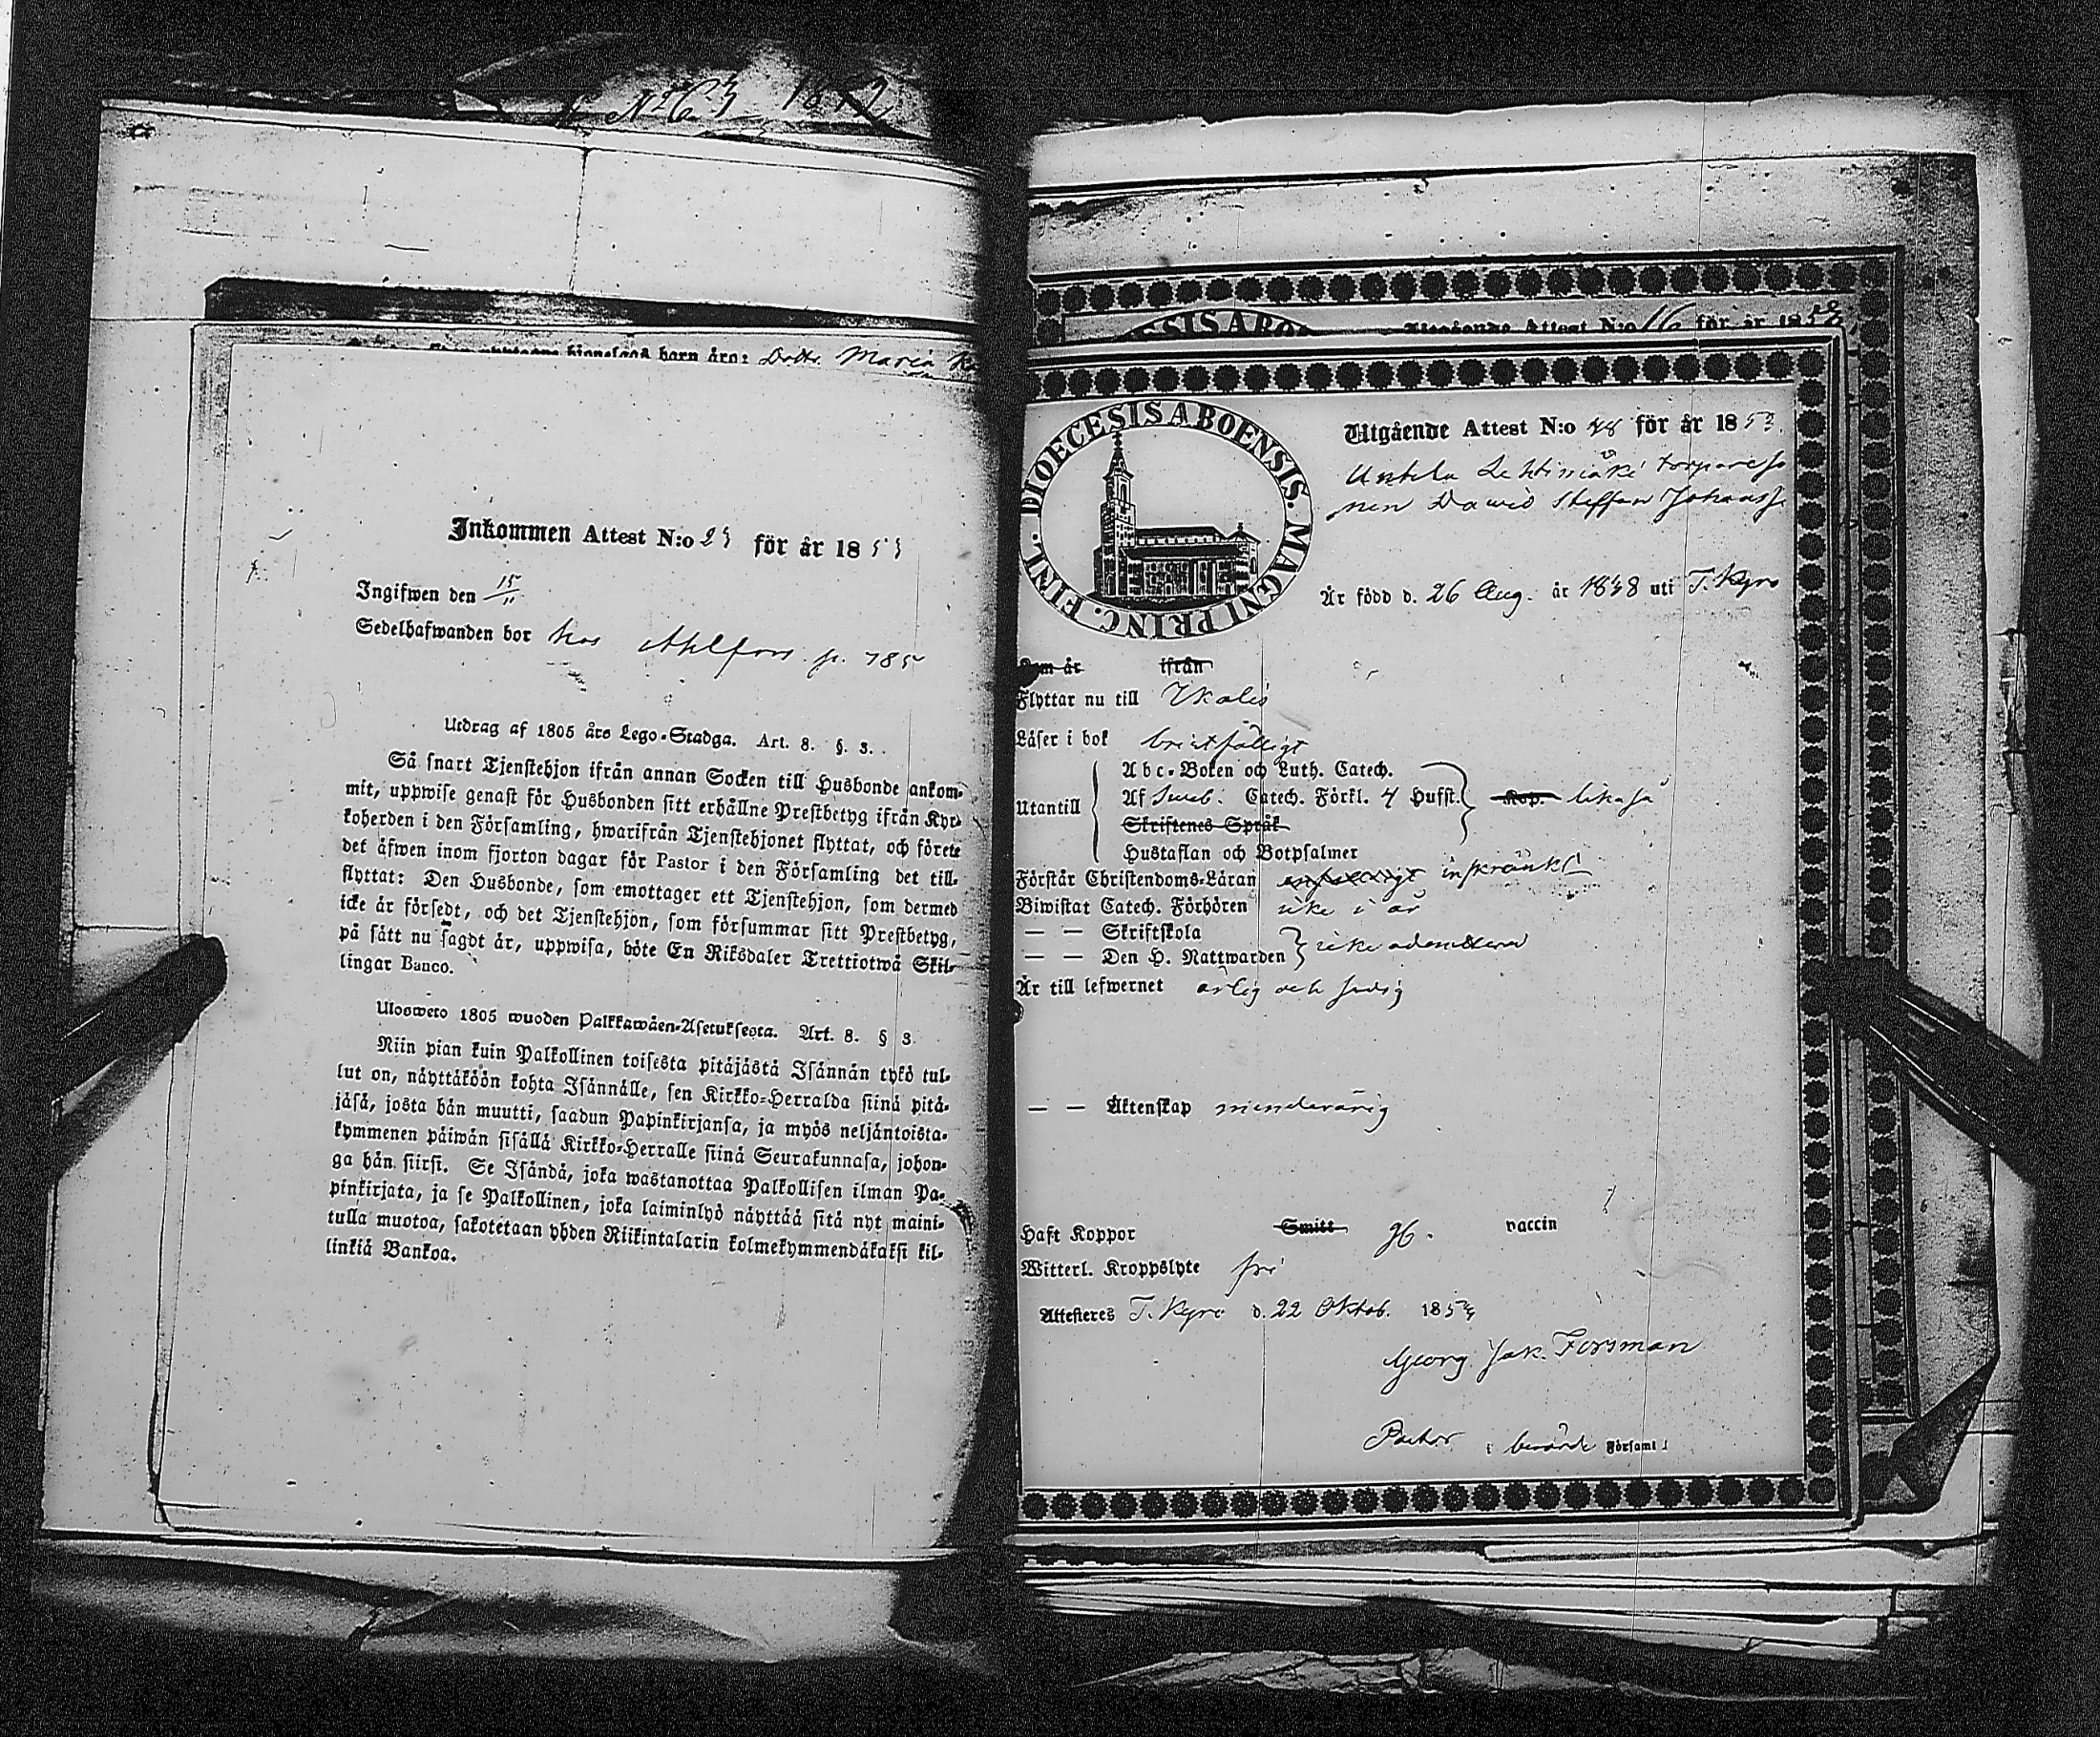 N:o 63 1852
barn äro: Dottr. Maria
Inkommen Attest N:o 23 för år 1853
Ingifwen den 15/11
Sedelhafwanden bor hos Ahlfors p. 785
Utdrag af 1805 års Lego-Stadga. Art. 8. §. 3.
Så snart Tjenstehjon ifrån annan Socken till Husbonde ankom-
mit, uppwise genast för Husbonden sitt erhållne Prestbetyg ifrån Kyr-
koherden i den Församling, hwarifrån Tjenstehjonet flyttat, och förete
det äfwen inom fjorton dagar för Pastor i den Församling det till-
flyttat: Den Husbonde, som emottager ett Tjenstehjon, som dermed
icke är försedt, och det Tjenstehjon, som försummar sitt Prestbetyg,
på sätt nu sagdt är, uppwisa, böte En Riksdaler Trettiotwå Skil-
lingar Banco.
Ulosweto 1805 wuoden Palkkawäen-Asetuksesta. Art. 8. § 3.
Niin pian kuin Palkollinen toisesta pitäjästä Isännän tykö tul-
lut on, näyttäköön kohta Isännälle, sen Kirkko-Herralda siinä pitä-
jäsä, josta hän muutti, saadun Papinkirjansa, ja myös neljäntoista-
kymmenen päiwän sisällä Kirkko-Herralle siinä Seurakunnasa, johon-
ga hän siirsi. Se Isändä, joka wastanottaa Palkollisen ilman Pa-
pinkirjata, ja se Palkollinen, joka laiminlyö näyttää sitä nyt maini-
tulla muotoa, sakotetaan yhden Riikintalarin kolmekymmendäkaksi kil-
linkiä Bankoa.
Utgående Attest N:o 16 för år 1852.
DIOECESIS ABOENSIS. MAGNI PRINC. FINL.
Utgående Attest N:o 48 för år 1853.
Untila Lehtimäki torpareso
nen Dawid Steffan Johanss.
Är född d. 26 Aug. år 1838 uti T. Kyro
Som är ifrån
Flyttar nu till Ikalis
Läser i bok bristfälligt
Utantill
Abc-Boken och Luth. Catech.
Af Sweb. Catech. Förkl. 4 Hufst.
Skriftenes Språk
Hustaflan och Botpsalmer
Kop. likaså
Förstår Christendoms-Läran inskränkt
Biwistat Catech. Förhören icke i år
— — Skriftskola
— — Den H. Nattwarden
icke admitterad
Är till lefwernet ärlig och sedig
— — Äktenskap minderårig
Haft Koppor Smitt gb. vaccin
Witterl. Kroppslyte fri
Attesteres T. Kyro d. 22 Oktob. 1853
Georg Jak. Forsman
Pastor i berörde Församl